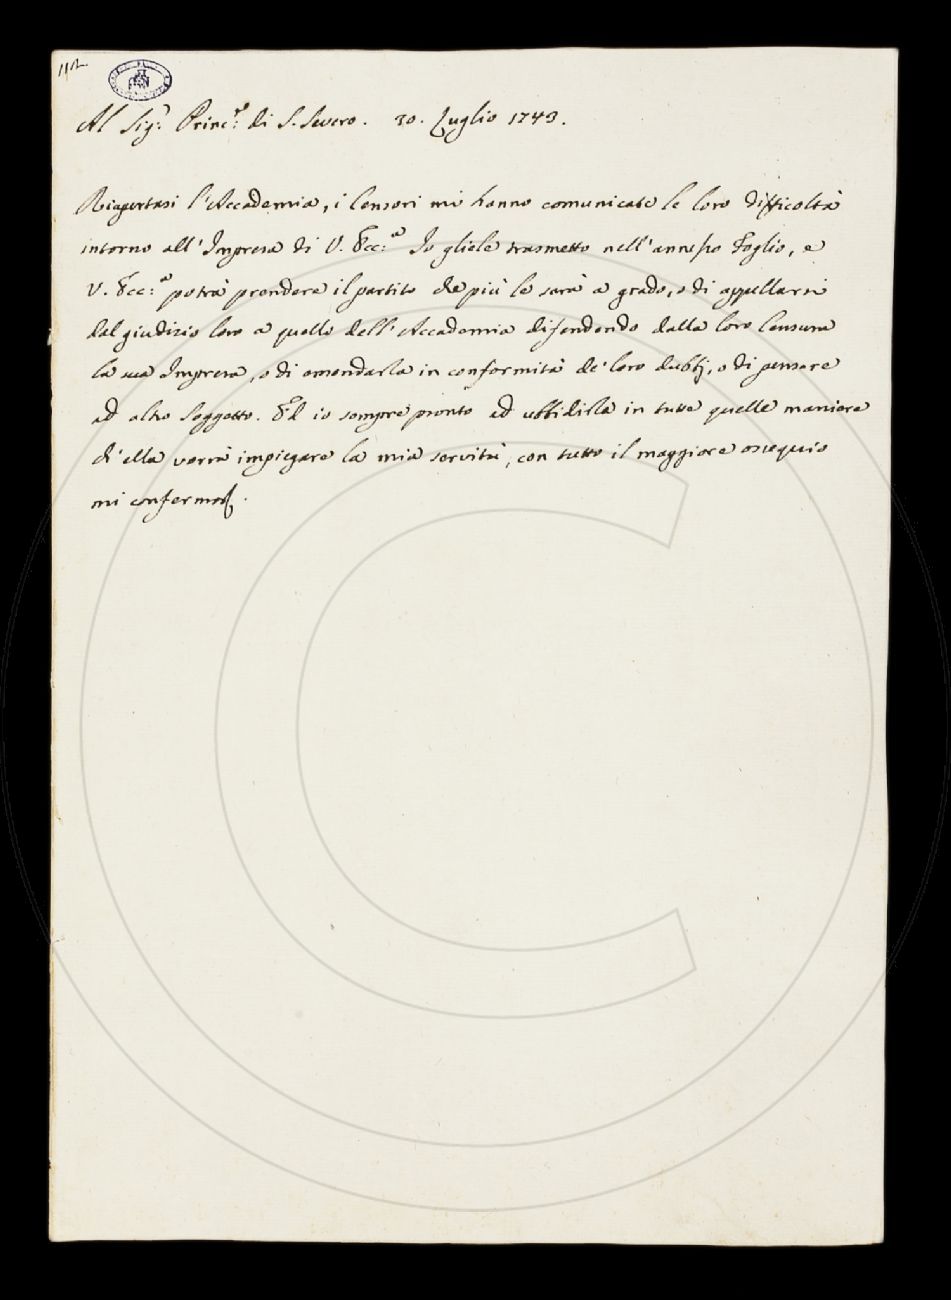 112
Al Sig.r Princ.e di S. Severo. 30. Luglio 1743.
Riapertasi l'Accademia, i Censori mi hanno comunicate le loro difficoltà
intorno all'Impresa di V. Ecc.a Io gliele trasmetto nell'annesso Foglio, e
V. Ecc.a potrà prendere il partito che più le sarà a grado, o di appellarsi
dal giudizio loro a quello dell'Accademia difendendo dalla loro Censura
la sua Impresa, o di emendarla in conformità de' loro dubbj, o di pensare
ad altro Soggetto. Ed io sempre pronto ad ubbidirla in tutte quelle maniere
ch'ella vorrà impiegare la mia servitù, con tutto il maggiore ossequio
mi confermo.